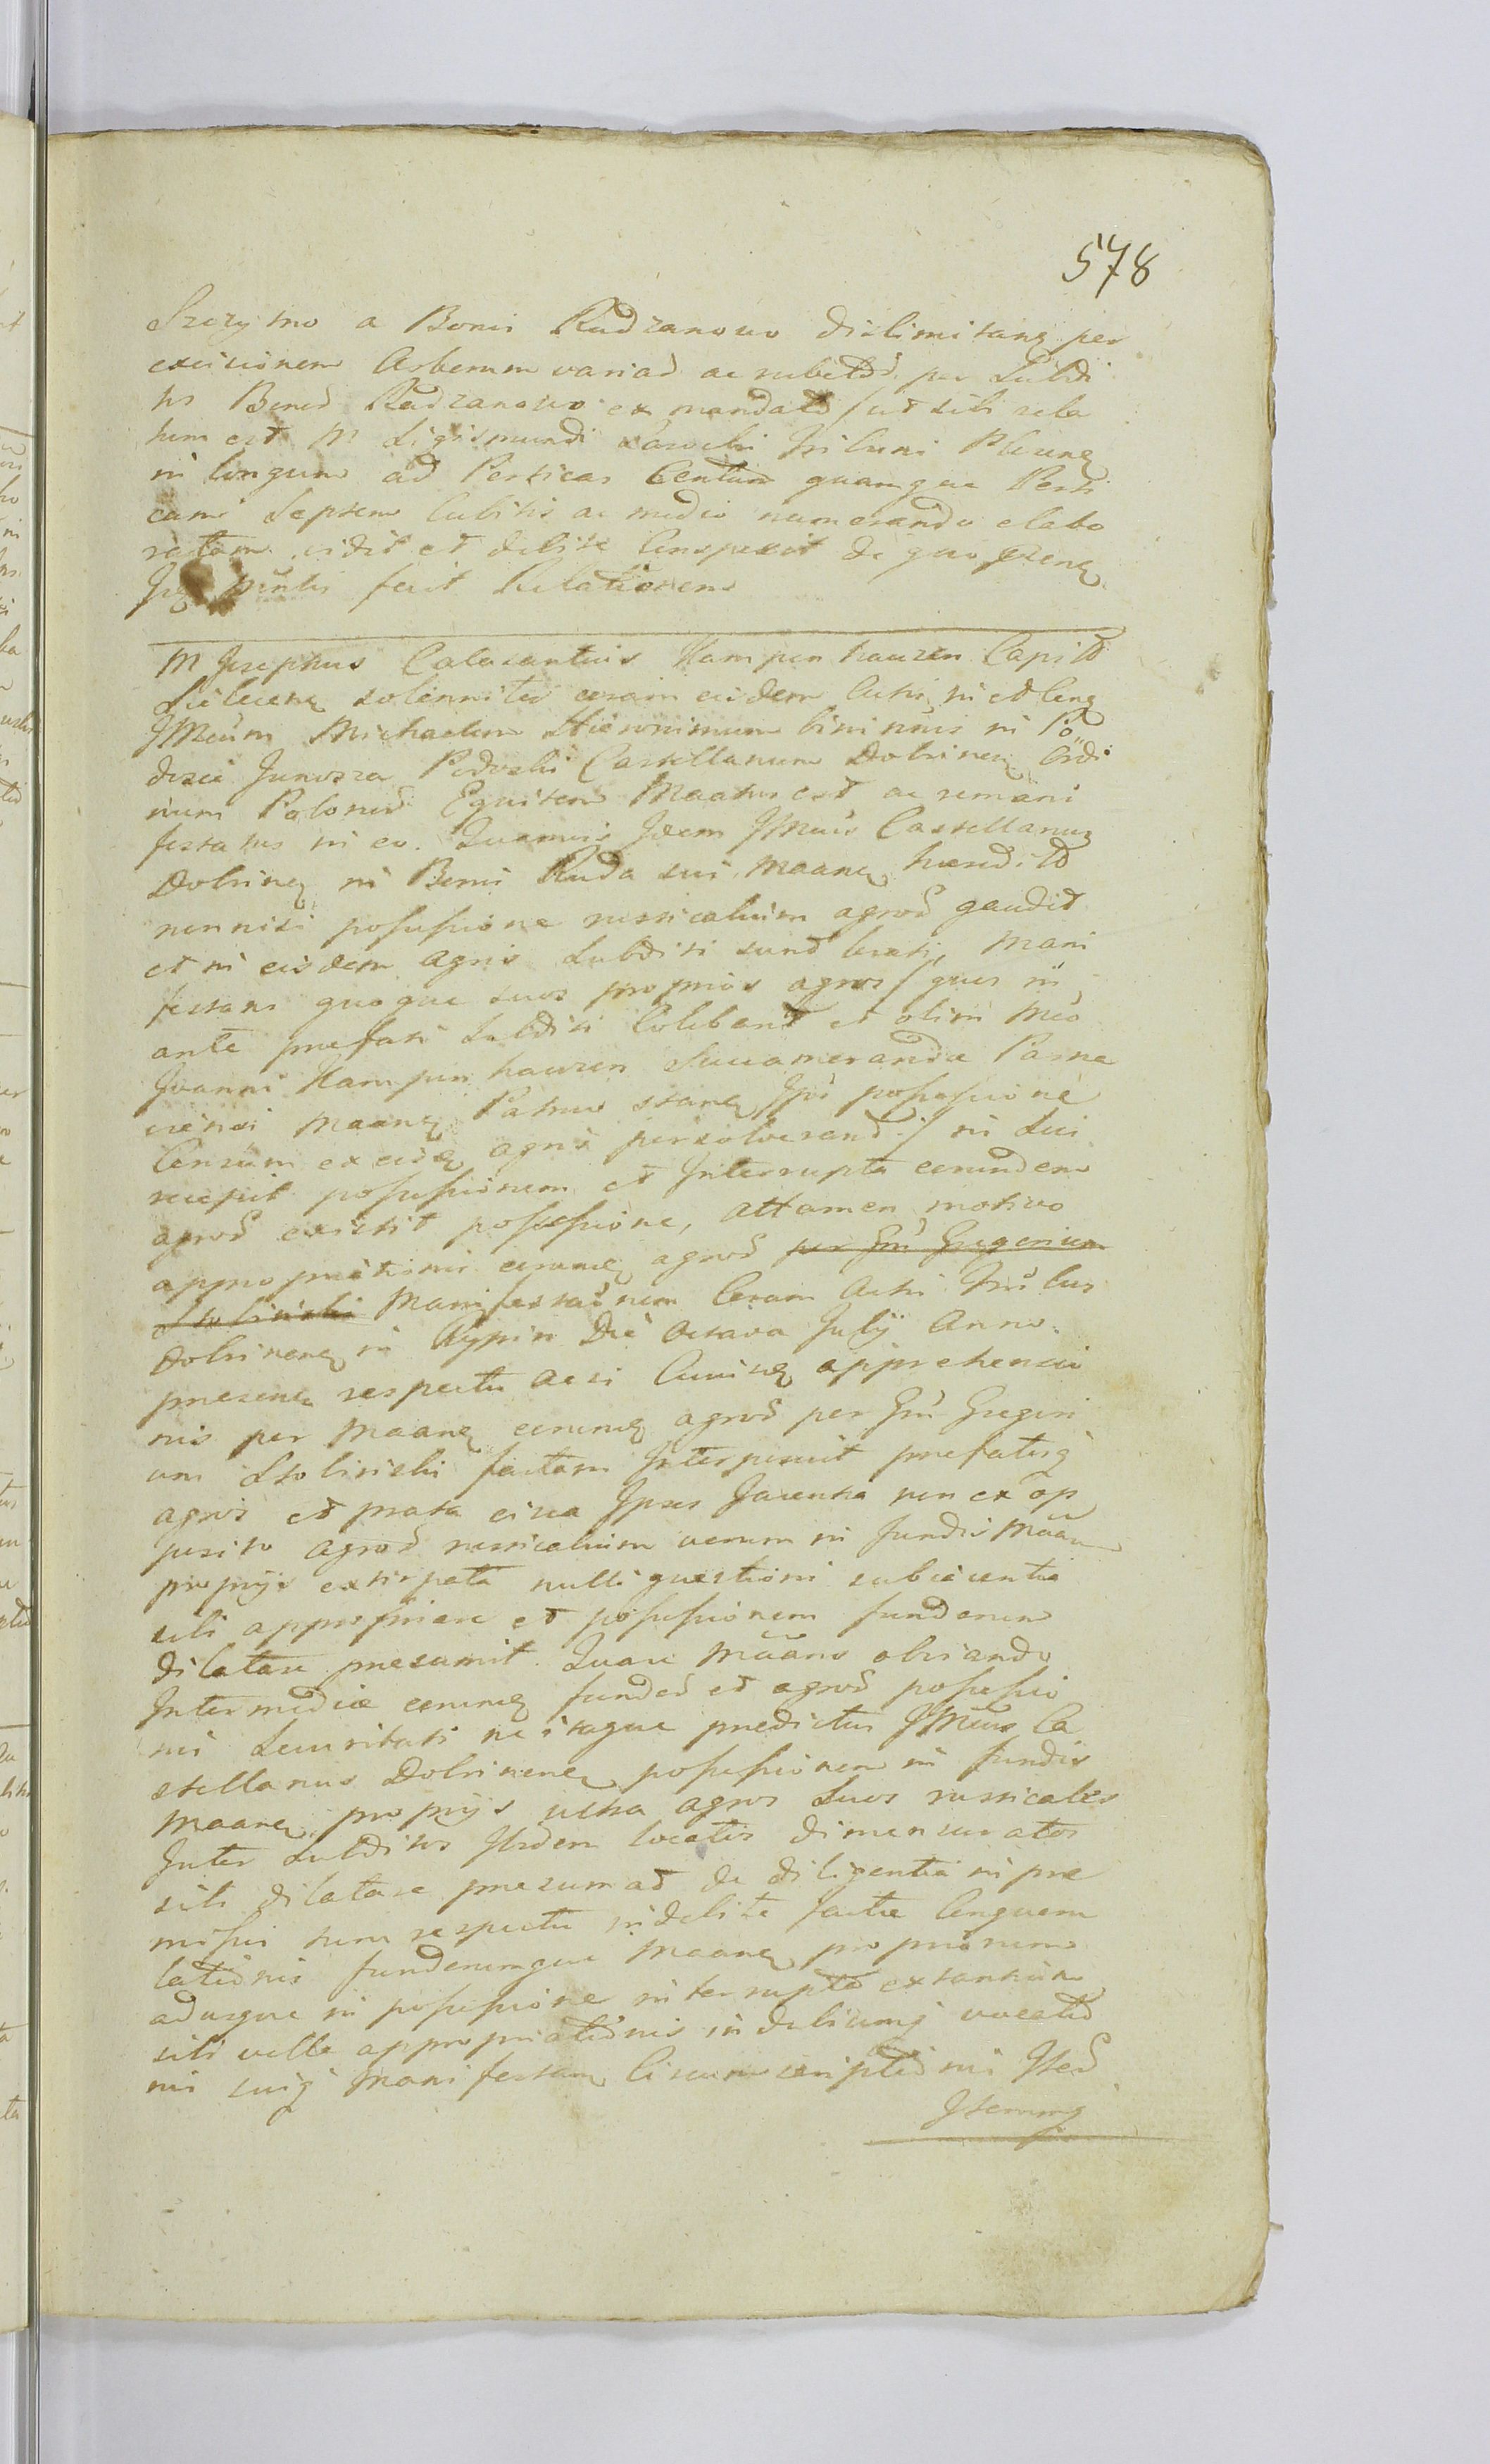 578
Szczytno a Bonis Radzanowo dislimitanq per
excisionem Arborum variar ac rubetor per Subdi
tos Bonor Radzanowo ex mandato /ut sibi rela
tum est/ M Sigismundi Lasocki Tribuni Plocenq
in longum ad Perticas Centum quamque Perti
cam Septem Cubitis ac medio numerando elabo
ratam vidit et debite Conspexit de quo
fecit Relationem
M Josephus Calasantius Kampenhauzen Capit
solenniter coram eisdem Actis in et Conq
JMcum Michaelem Hieronimum binimus in Po
doscie Junosza Podoski Castellanum Dobrinen Ordi
num Polonor Equitem Maatus est ac remani
festatus in eo. Quamvis Idem JMcus Castellanus
Dobrinenq in Bonis Ruda sui Maanq haeredit
non nisi possessione rusticalium agror gaudet
et in eisdem agris Subditi sunt locati, mani
festans quoque suos proprios agros /quos in
ante praefati Subditi Colebant et olim Mco
Joanni Kampenhauzen Succamerario Parna
viensi Maanq Patruo
Censum ex eisdq agris persolverant/ in Sui
recepit possessionem et Interrupta eorundem
agror existit possessione, attamen motivo
appropriationis eorumq agror per Gm Gregorium
Stolinski Manifestationem Coram Actis Tribus
Dobrinenq in Rypin Die Octava Julÿ Anno
praesenq respectu acsi apprehensio
nis per Maanq eorumq agror per Gm Gregori
um Stolinski factam Interposuit praefatosq
agros et prata circa Ipsos Jacentia non ex op
posito agror rusticalium verum in fundis Maan
proprÿs extirpata nulli questioni subiacentia
sibi appropriare et possessionem fundorum
dilatare praesumit. Quare Maans obviando
Intermediae eorumq fundor et agror possessio
ni Securitati ne itaque praedictus JMcus Ca
stellanus Dobrinenq possessionem in fundis
Maanq proprÿs ultra agros Suos rusticales
Inter Subditos Ibidem locatos dimensuratos
sibi dilatare praesumat de diligentia in prae
missis tum respectu indebite factae Conquere
lationis fundorumque Maanq propriorum
adusque in possessione interrupta extantium
sibi velle appropriationis indebitaeq vocatio
nis suiq manifestanq Circumscriptionis Iter
Iterumq